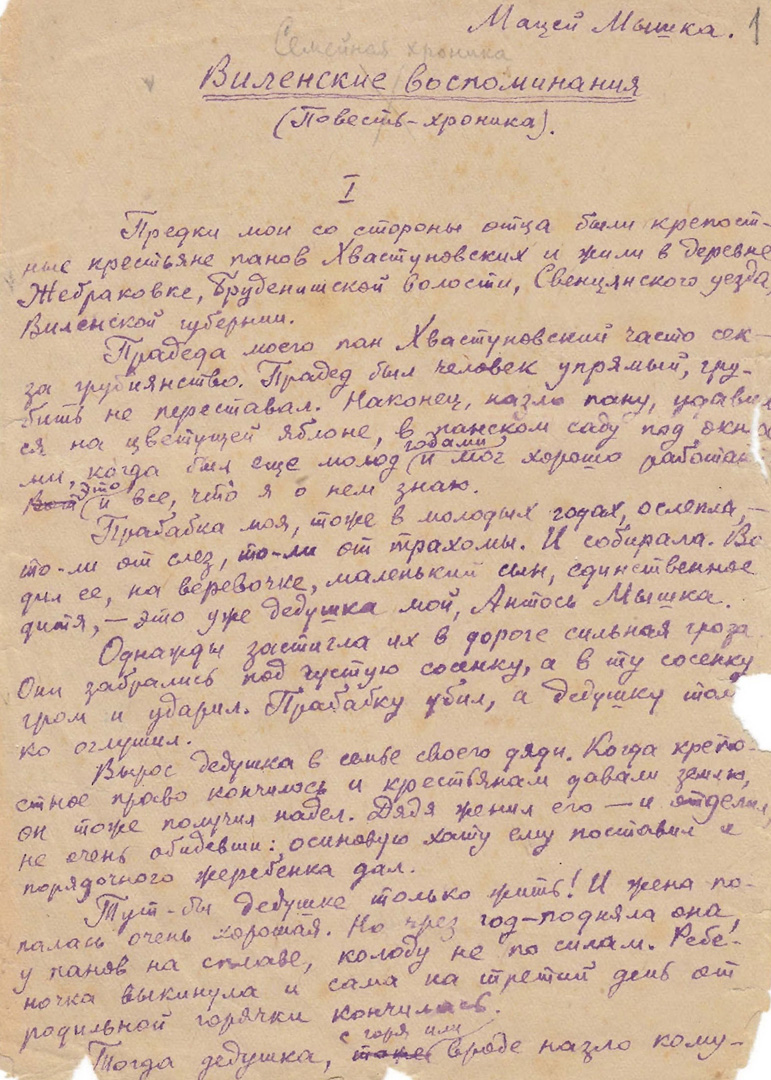 Мацей Мышка. 1
Семейная хроника
Виленские воспоминания
(Повесть-хроника).
I
Предки мои со стороны отца были крепост-
ные крестьяне панов Хвастуновских и жили в деревне
Жебраковке, Бруденишской волости, Свенцянского уезда,
Виленской губернии.
Прадеда моего пан Хвастуновский часто сек-
за грубиянство. Прадед был человек упрямый, гру-
бить не переставал. Наконец, назло пану, удавил
ся на цветущей яблоне, в панском саду под окна
ми, когда был еще молод годами и мог хорошо работа
Вот это и все, что я о нем знаю.
Прабабка моя, тоже в молодых годах, ослепла, –
то-ли от слез, то-ли от трахомы. И собирала. Во
дил ее, на веревочке, маленький сын, единственное
дитя, – это уже дедушка мой, Антось Мышка.
Однажды застигла их в дороге сильная гроза
Они забрались под густую сосенку, а в ту сосенку
гром и ударил. Прабабку убил, а дедушку толь
ко оглушил.
Вырос дедушка в семье своего дяди. Когда крепо-
стное право кончилось и крестьянам давали землю,
он тоже получил надел. Дядя женил его – и отделил,
не очень обидевши: осиновую хату ему поставил и
порядочного жеребенка дал.
Тут-бы дедушке только жить! И жена по-
палась очень хорошая. Но чрез год – подняла она,
у панов на сплаве, колоду не по силам. Ребе-
ночка выкинула и сама на третий день от
родильной горячки кончилась.
Тогда дедушка, с горя или тоже вроде назло кому-